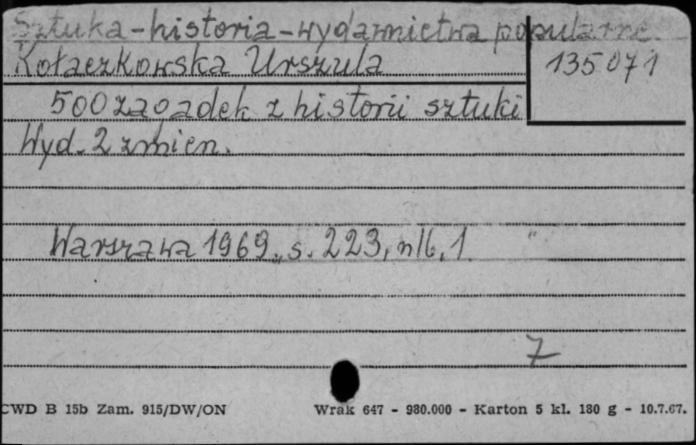 Sztuka-historia-wydawnictwa popularne
Kołaczkowska Urszula
135071
500 zagadek z historii sztuki
Wyd. 2 zmien.
Warszawa 1969, s. 223, nlb, 1
7
CWD B 15b Zam. 915/DW/ON Wrak 647 - 980.000 - Karton 5 kl. 180 g - 10.7.67.